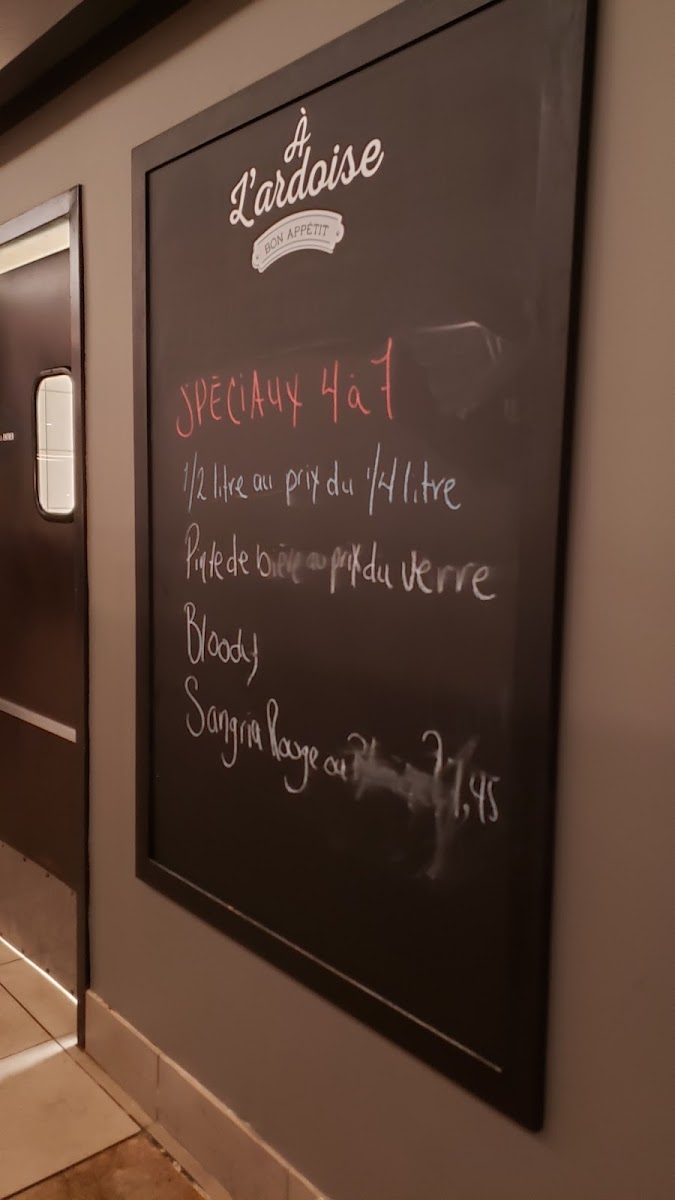 À
L'ardoise
BON APPÉTIT
SPÉCIAUX 4 à 7
1/2 litre au prix du 1/4 litre
Pinte de bière au prix du verre
Bloody
Sangria Rouge ou 7,45